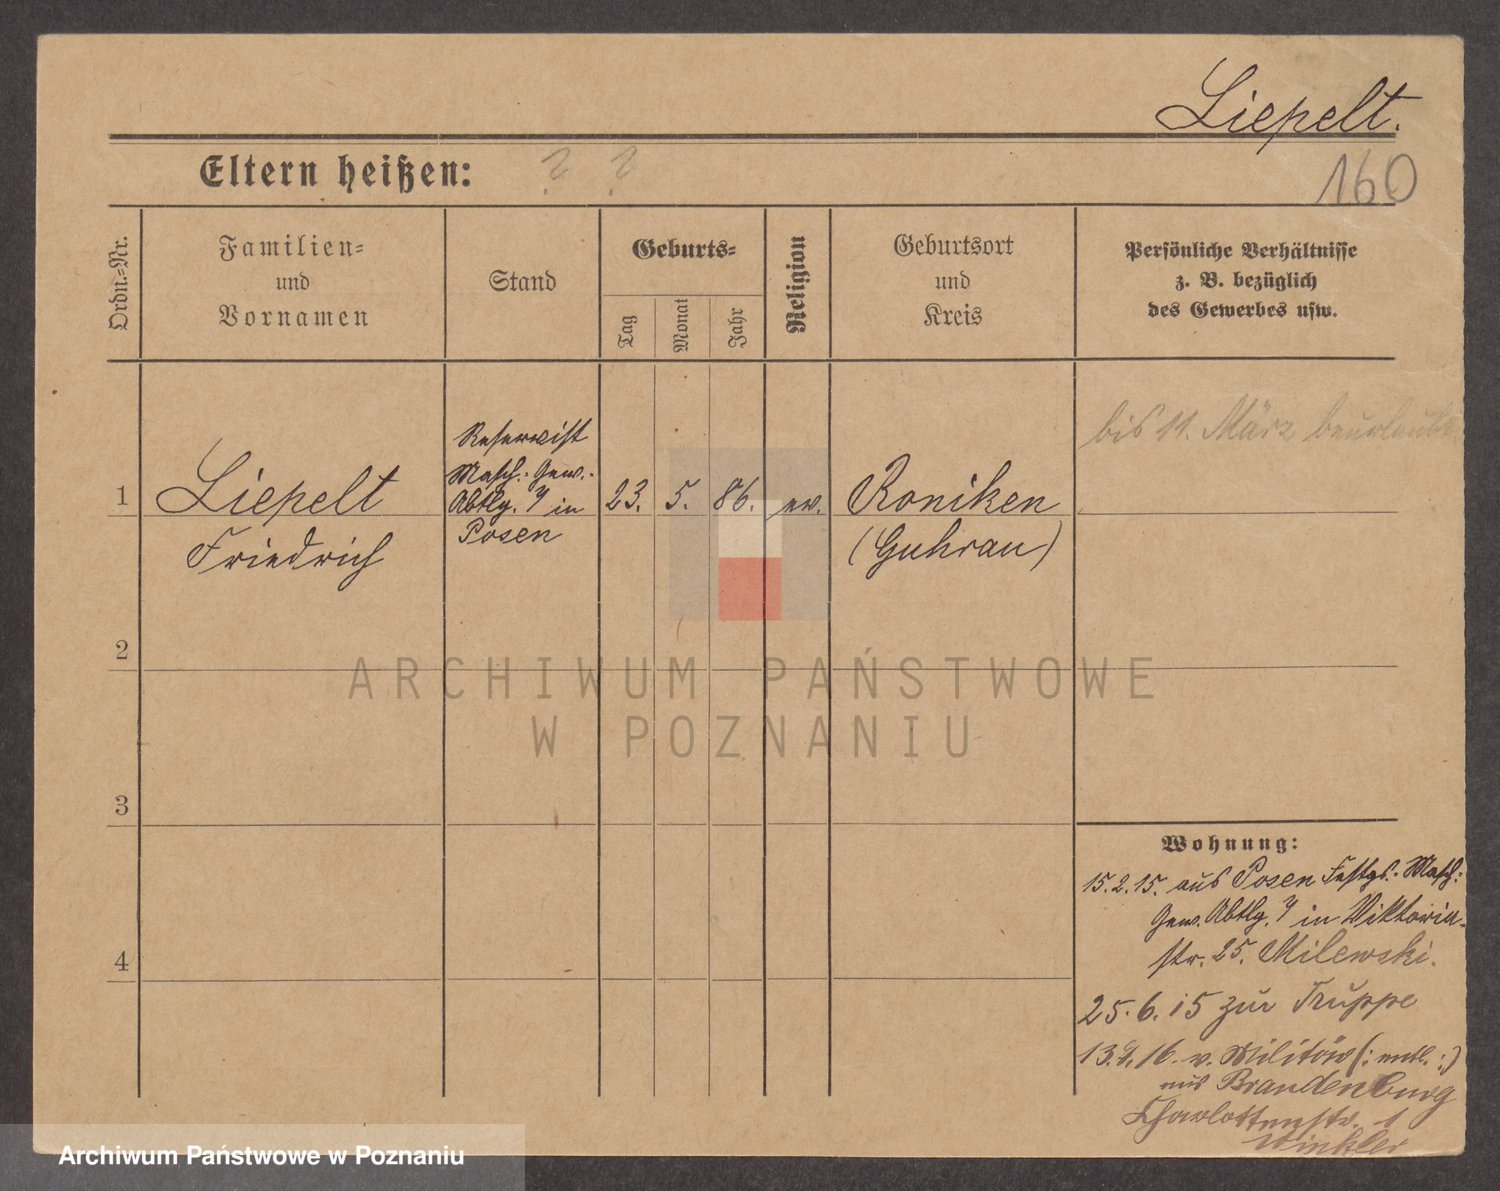 Liepelt.
Eltern heißen: ? ?
160
Ordn.=Nr.
Familien=
und
Vornamen
Stand
Geburts=
Tag
Monat
Jahr
Religion
Geburtsort
und
Kreis
Persönliche Verhältnisse
z. B. bezüglich
des Gewerbes usw.
bis 11. März beurlaubt
Reservist
Masch.: Gew.-
Abtlg. 4 in
Posen
1 Liepelt 23. 5. 86. ev. Roniken
Friedrich (Guhrau)
2
ARCHIWUM PAŃSTWOWE
W POZNANIU
3
Wohnung:
15.2.15. aus Posen Festgs.- Masch:
Gew. Abtlg. 4 in Viktoria-
str. 25. Milewski.
4
25.6.15 zur Truppe
16 v. Militär (: entl. :)
aus Brandenburg
Charlottenstr. 1
Winkler
Archiwum Państwowe w Poznaniu